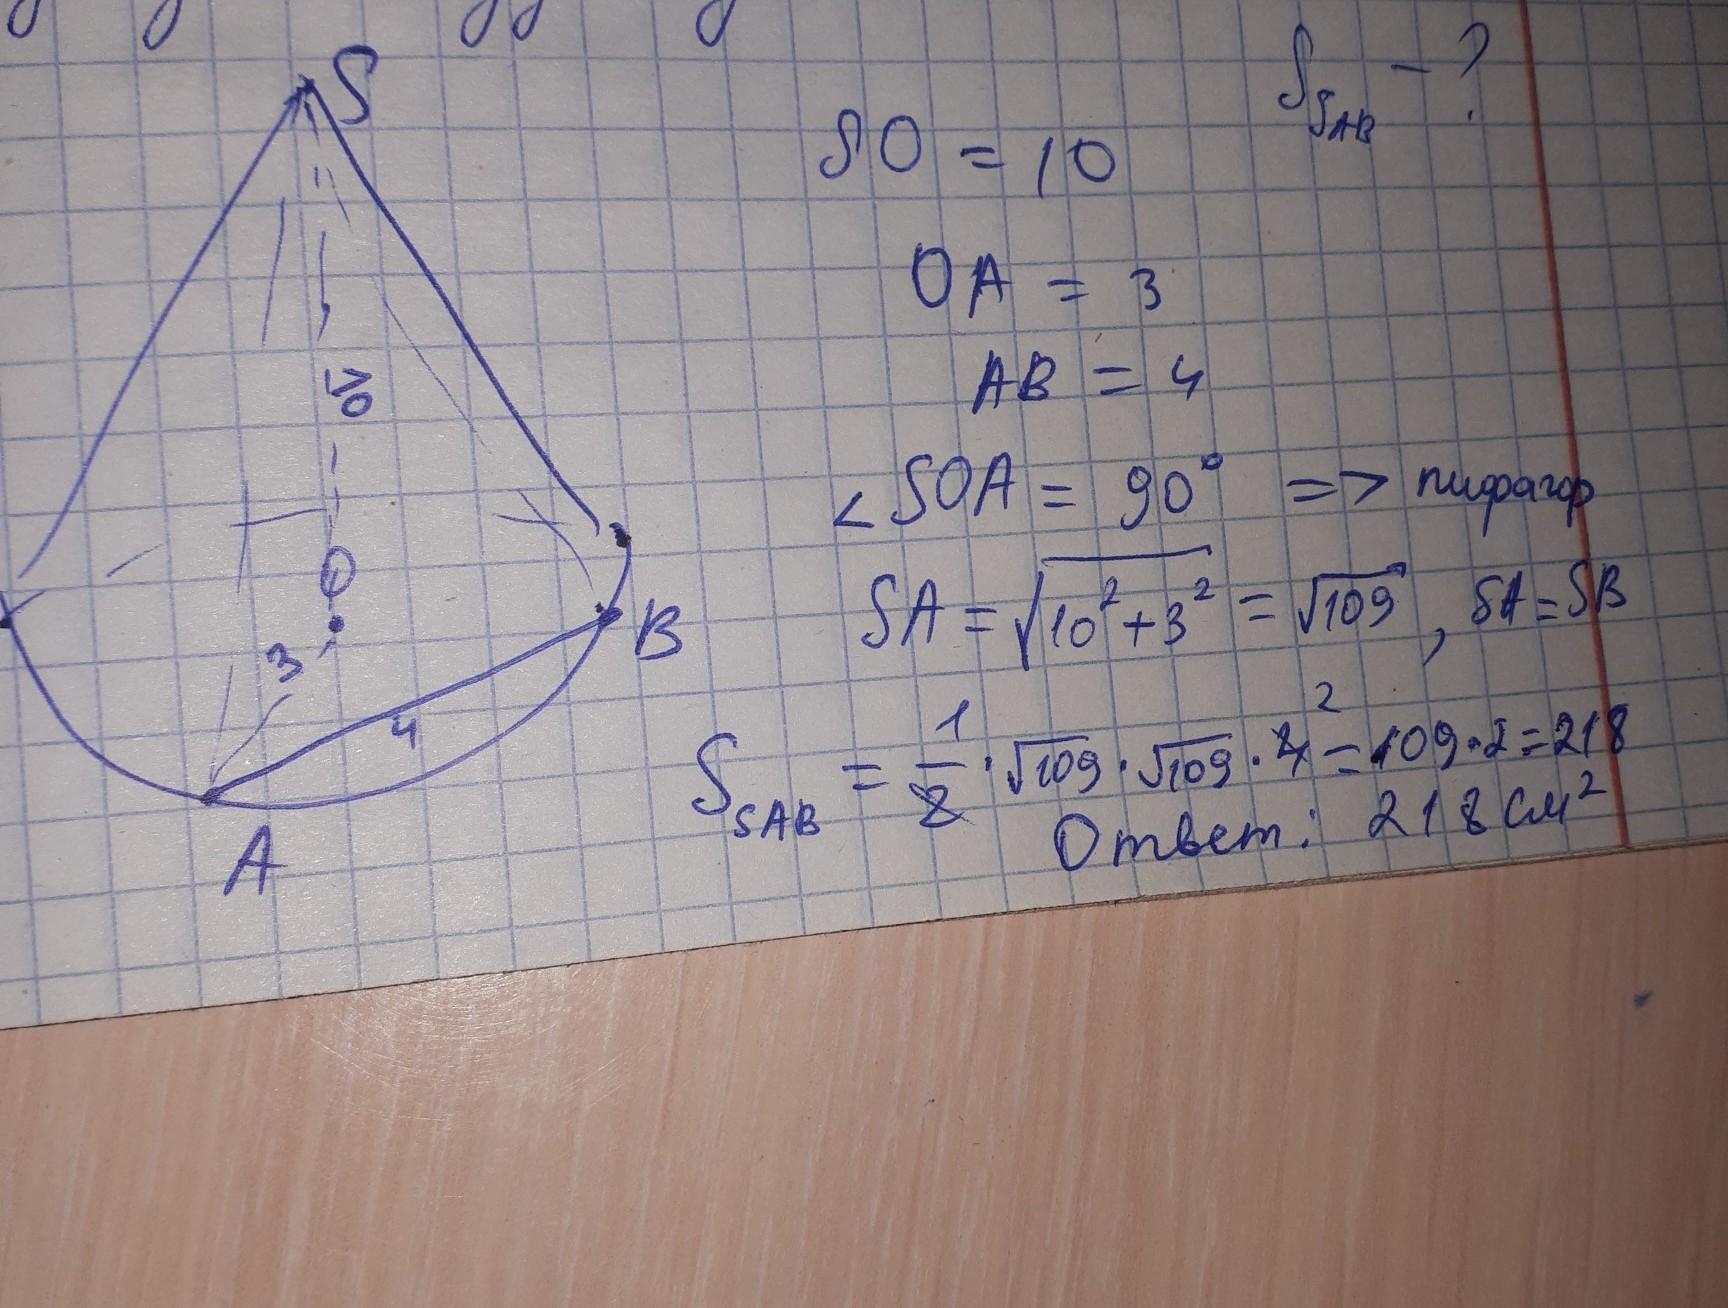 S
S_SAB - ?
SO = 10
OA = 3
10
AB = 4
< SOA = 90° => пифагор
O
SA = √10² + 3² = √109 , SA = SB
B
3
4
S_SAB = 1/2 · √109 · √109 · 4 2 = 109 · 2 = 218
Ответ: 218 см²
A